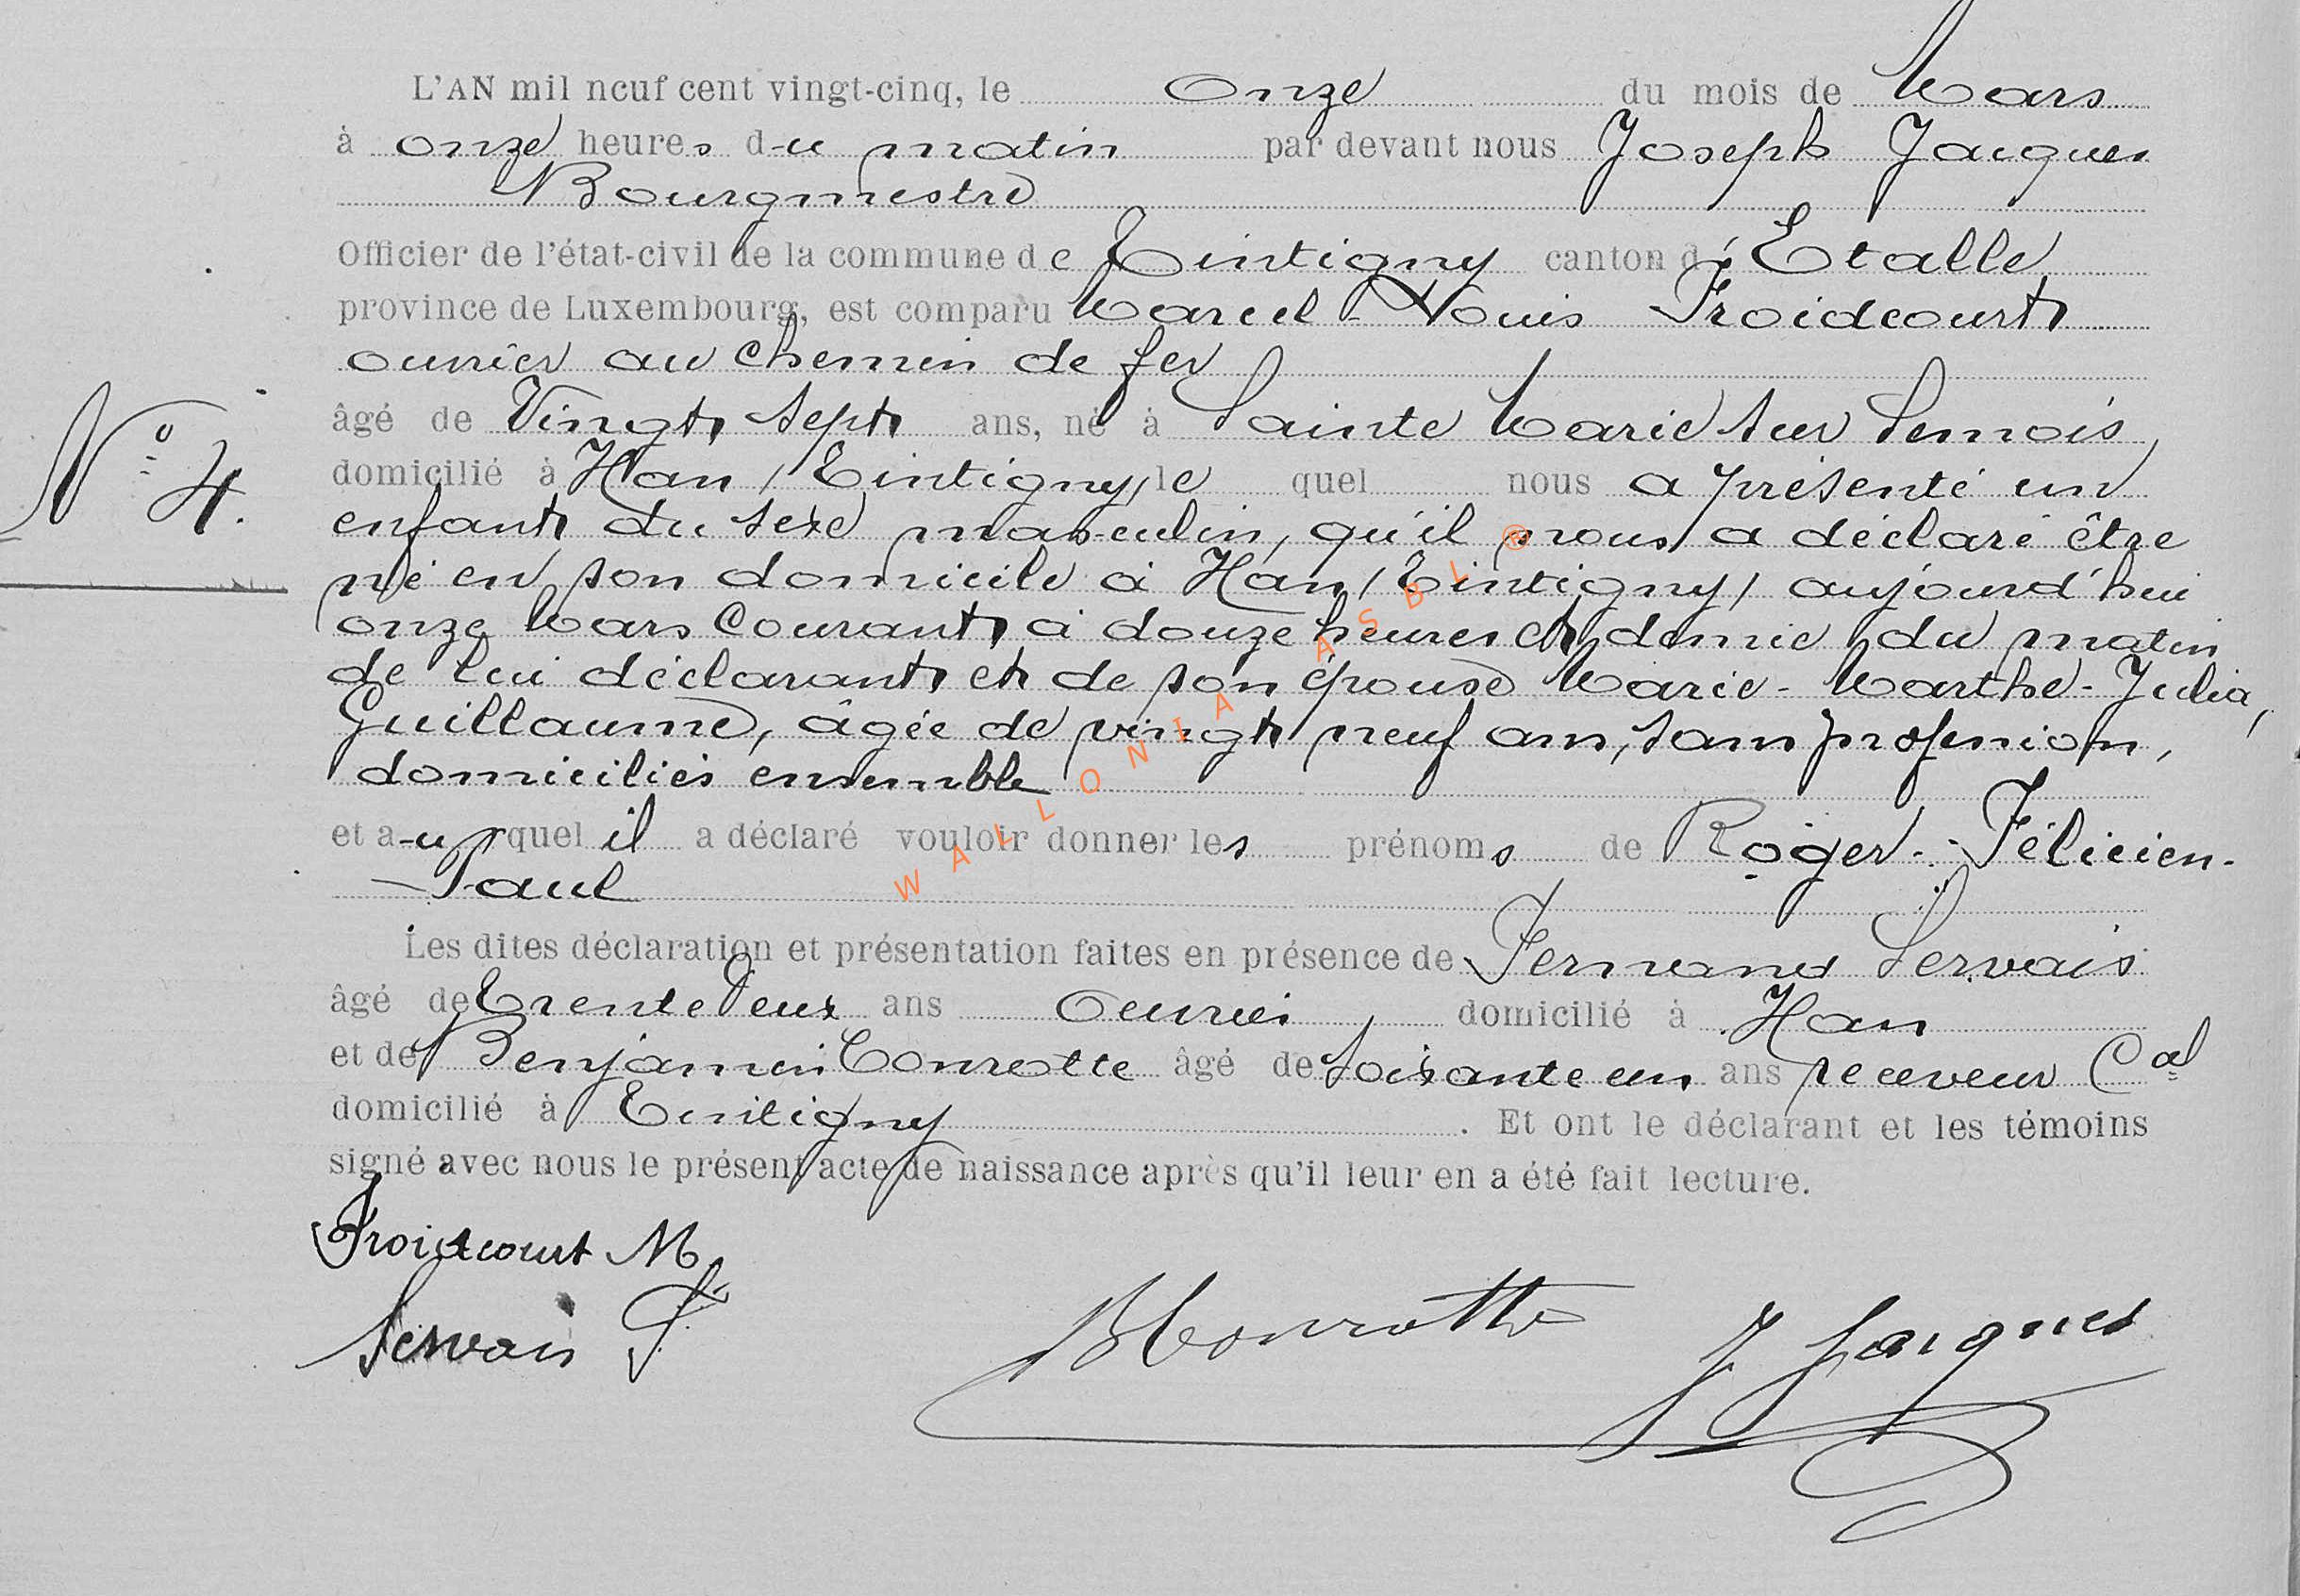 L'AN mil neuf cent vingt-cinq, le onze du mois de Mars
à onze heures du matin par devant nous Joseph Jacques
Bourgmestre
Officier de l'état-civil de la commune de Tintigny canton d'Etalle
province de Luxembourg, est comparu Marcel-Louis Froidcourt
ouvrier au chemin de fer
âgé de Vingt sept ans, né à Sainte Marie sur Semois,
N° 4.
domicilié à Han / Tintigny / le quel nous a présenté un
enfant du sexe masculin, qu'il nous a déclaré être
né en son domicile à Han / Tintigny / aujourd'hui
onze Mars Courant à douze heures et demie du matin
de lui déclarant et de son épouse Marie-Marthe-Julia,
Guillaume, âgée de vingt neuf ans, sans profession,
domiciliés ensemble
et auquel il a déclaré vouloir donner les prénoms de Roger-Félicien-
-Paul
Les dites déclaration et présentation faites en présence de Fernand Servais
âgé de Trente Deux ans Ouvrier domicilié à Han
et de Benjamin Conrotte âgé de Soixante un ans receveur Cal
domicilié à Tintigny. Et ont le déclarant et les témoins
signé avec nous le présent acte de naissance après qu'il leur en a été fait lecture.
Froidcourt M
Servais F
BConrotte
J Jacques
WALLONIA ASBL ®